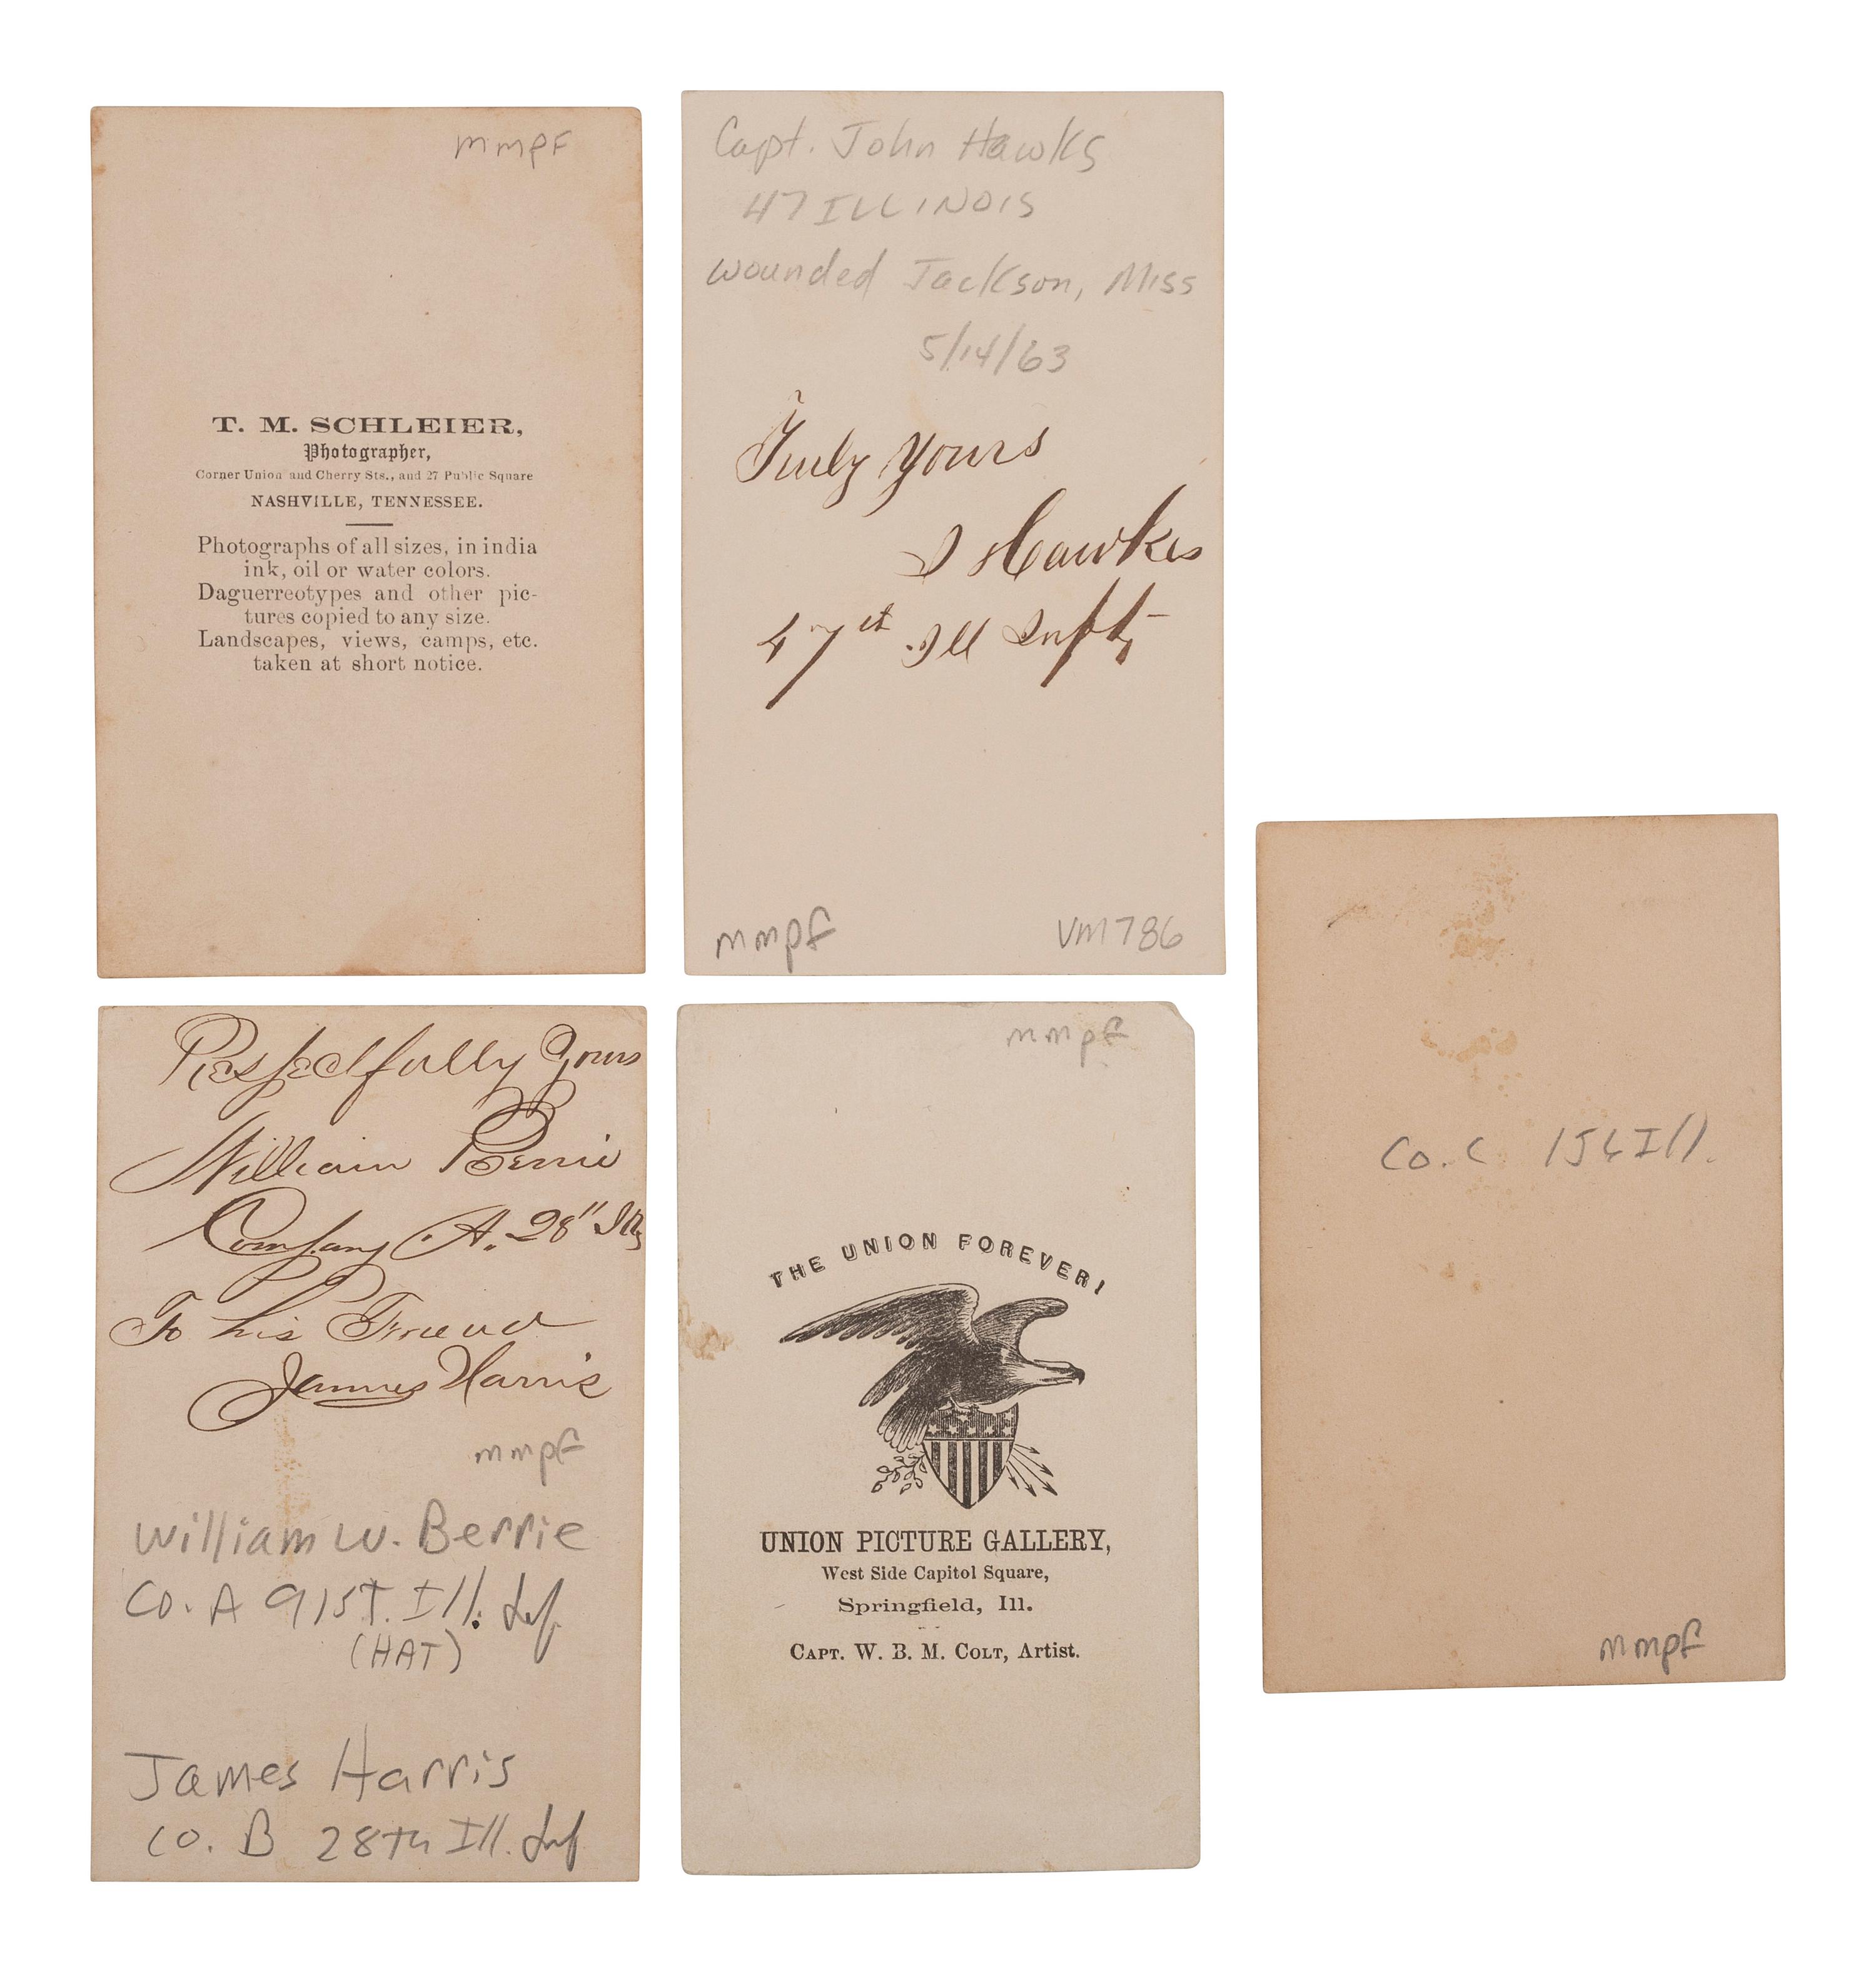 mmpf
T. M. SCHLEIER,
Photographer,
Corner Union and Cherry Sts., and 27 Public Square
NASHVILLE, TENNESSEE.
Photographs of all sizes, in india
ink, oil or water colors.
Daguerreotypes and other pic-
tures copied to any size.
Landscapes, views, camps, etc.
taken at short notice.
Capt. John Hawks
47 ILLINOIS
wounded Jackson, Miss
5/14/63
Truly Yours
J Hawkes
47st Ill Inft
mmpf
VM786
Respectfully Yours
William Berrie
Company A. 28"
To his Friend
James Harris
mmpf
William W. Berrie
Co. A 91ST. Ill. Inf
(HAT)
James Harris
Co. B 28Th Ill. Inf
mmpf
THE UNION FOREVER!
UNION PICTURE GALLERY,
West Side Capitol Square,
Springfield, Ill.
CAPT. W. B. M. COLT, Artist.
Co. C 156 Ill.
mmpf